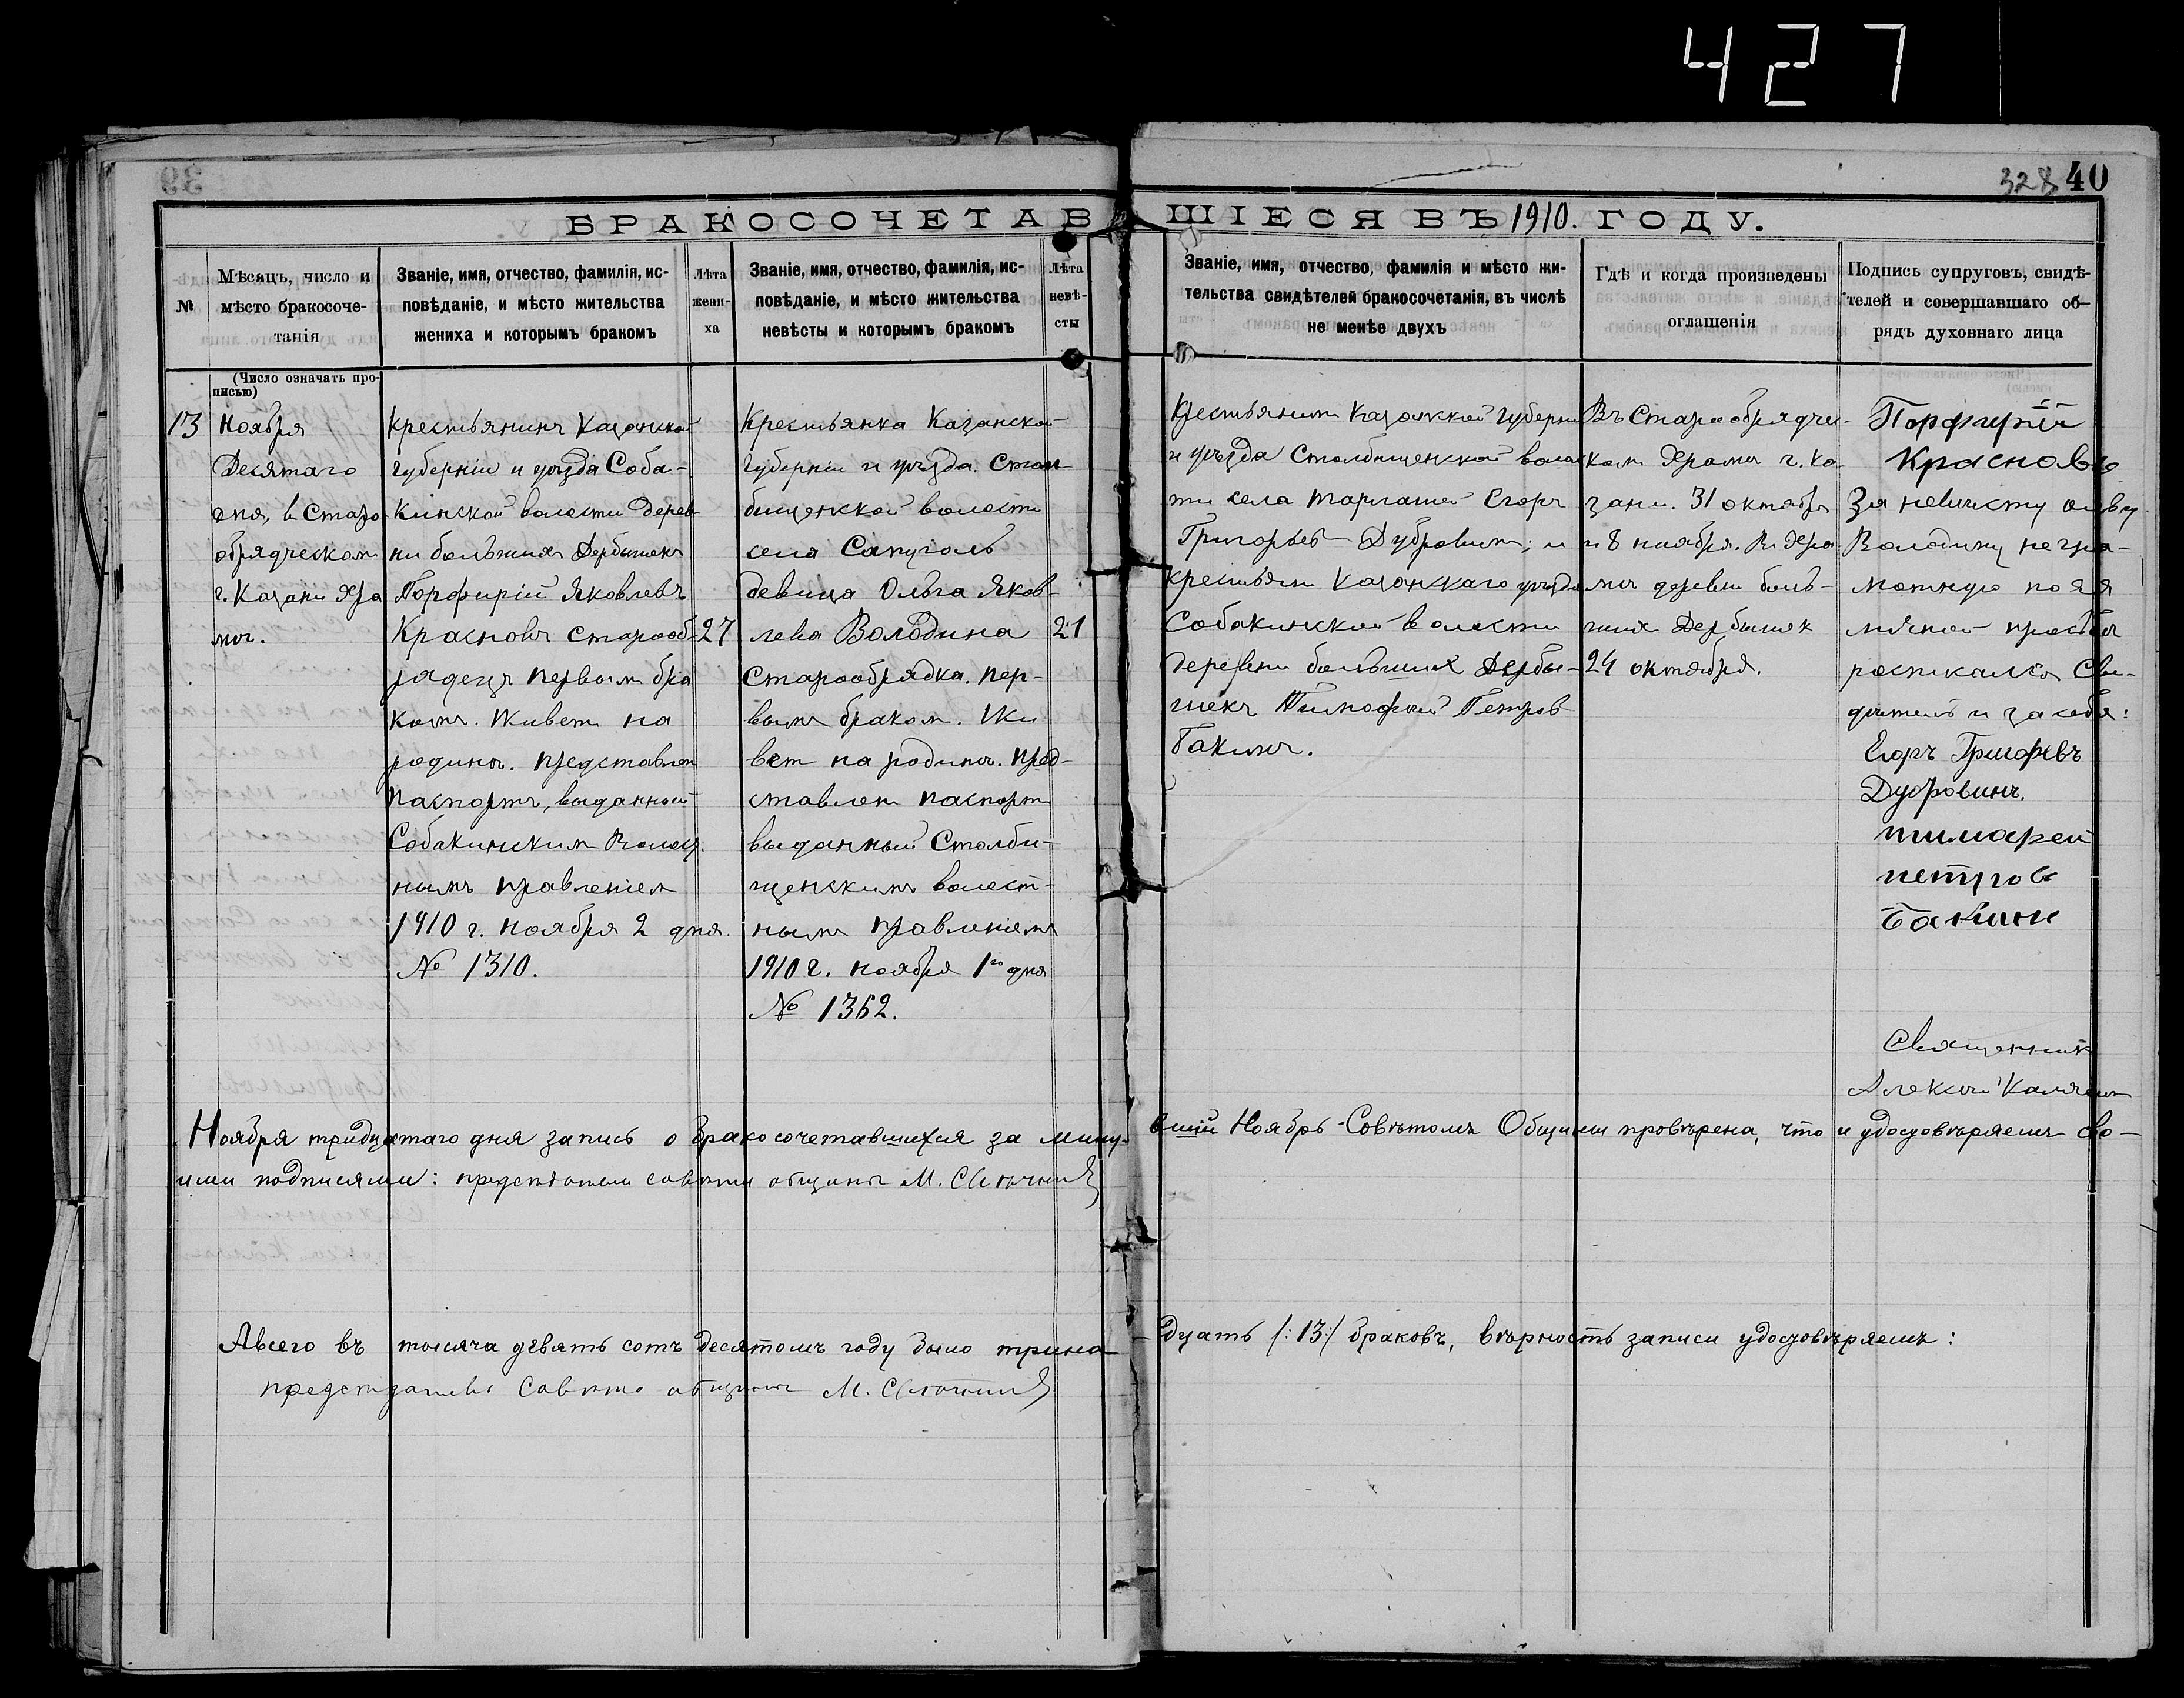 427
328 40
БРАКОСОЧЕТАВШІЕСЯ ВЪ 1910. ГОДУ.
№
Мѣсяцъ, число и
мѣсто бракосоче-
танія
Званіе, имя, отчество, фамилія, ис-
повѣданіе, и мѣсто жительства
жениха и которымъ бракомъ
Лѣта
жени-
ха
Званіе, имя, отчество, фамилія, ис-
повѣданіе, и мѣсто жительства
невѣсты и которымъ бракомъ
Лѣта
невѣ-
сты
Званіе, имя, отчество, фамилія и мѣсто жи-
тельства свидѣтелей бракосочетанія, въ числѣ
не менѣе двухъ
Гдѣ и когда произведены
оглашенія
Подпись супруговъ, свидѣ-
телей и совершавшаго об-
рядъ духовнаго лица
(Число означать про-
писью)
13
Ноября
Десятаго
дня, в Старо-
обрядческом
г. Казани Хра
мѣ.
Крестьянинъ Казанской
губерніи и уѣзда Соба-
кинской волости дерев
ни большихъ Дербышекъ
Порфирій Яковлевъ
Красновъ старооб-
рядецъ первымъ бра
комъ. Живетъ на
родинѣ. Представлен
паспортъ, выданный
Собакинским Волост.
нымъ правленіем
1910 г. Ноября 2 дня.
№ 1310.
27
Крестьянка Казанской
Губерніи и уѣзда. Стол
бищенской волости
села Сапуголь
девица Ольга Яков-
лева Володина
Старообрядка. пер-
вымъ браком. Жи
вет на родинѣ. Пред-
ставлен паспорт
выданный Столби-
щенскимъ волост-
нымъ правленіемъ
1910 г. ноября 1го дня
№ 1362.
21
Крестьянин Казанской Губерни
и уѣзда Столбищенской волос
ти села Тарлашей Егоръ
Григорьев Дубровин; и
крестьян Казанскаго уѣзда
Собакинской волости
деревни большихъ Дербы-
шекъ Тимофей Петров
Бакинъ.
Въ Старообрядчес-
ком Храмѣ г. Ка
зани. 31 октября
и 8 ноября. Въ Хра
мѣ деревни боль-
шихъ Дербышек
24 октября.
Порфирій
Красновъ
За невѣсту ольгу
Володину негра-
мотную по ея
личной просьбѣ
росписался Сви-
дѣтель и за себя:
Егоръ Григоревъ
Дубровинъ.
тимофей
петров
Бакинъ
Священникъ
Алексѣй Калягин
Ноября тридцатаго дня запись о бракосочетавшихся за мину-
вшій Ноябрь Совѣтомъ Общины провѣрена, что и удостовѣряемъ сво-
ими подписями: председатель совета общины М.
Авсего въ тысяча девять сотъ десятомъ году было трина-
дцать /:13:/ браковъ, вѣрность записи удостовѣряемъ:
председатель Совета общины М.